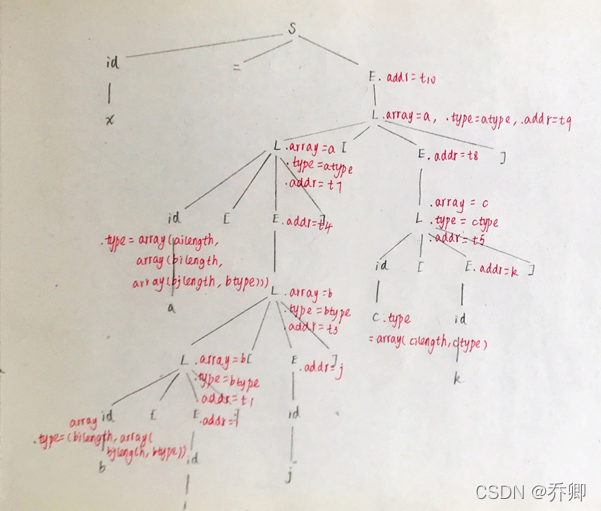 S
id = E.addr=t10
x
L.array=a, .type=atype, .addr=t9
L.array=a [ E.addr=t8 ]
.type=atype
.addr=t7
id [ E.addr=t4 ]
.array=c
L.type=ctype
.addr=t5
.type=array(ailength,
array(bilength,
array(bjlength, btype)))
a
id [ E.addr=k ]
L.array=b
.type=btype
.addr=t3
c.type
=array(cilength, ctype)
id
k
L.array=b [ E.addr=j ]
.type=btype
.addr=t1
id [ E.addr=i ]
id
array
.type=(bilength, array(
bjlength, btype))
b
id
j
i
CSDN @乔卿